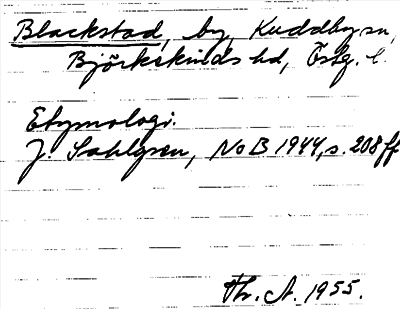 Blackstad, by, Kuddby sn,
Björkekinds hd, Östg. l.
Etymologi.
J. Sahlgren, NoB 1944, s. 208 ff
Th. A. 1955.